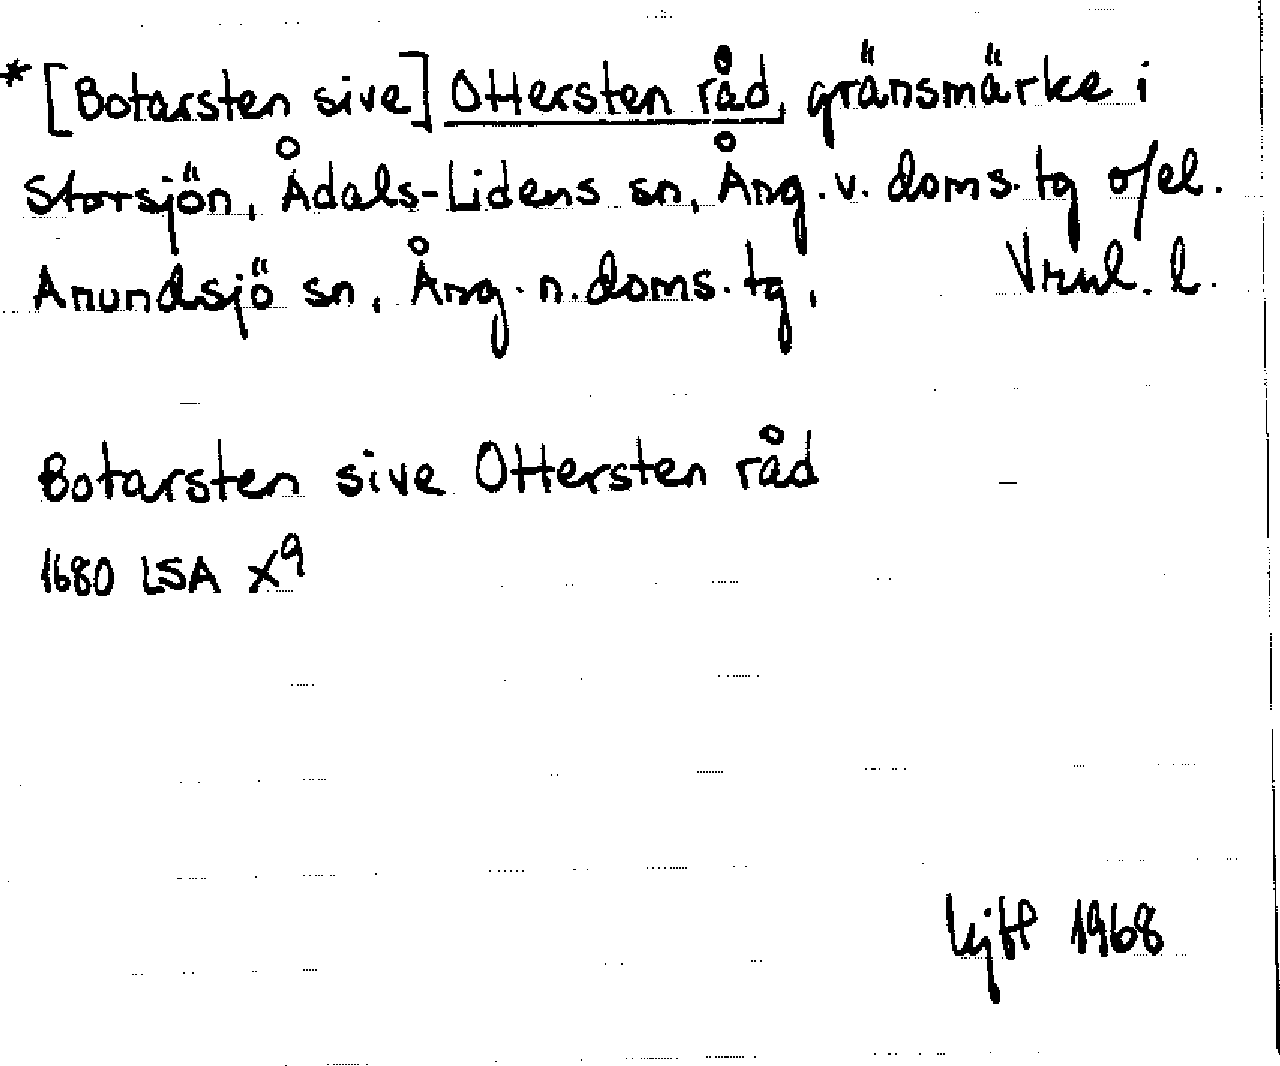 * [Botarsten sive] Ottersten råd, gränsmärke i
Storsjön, Ådals-Lidens sn, Ång. v. doms. tg o/el.
Anundsjö sn, Ång. n. doms. tg, Vrml. l.
Botarsten sive Ottersten råd
1680 LSA X9
1968